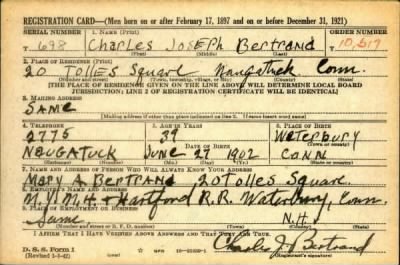 REGISTRATION CARD—(Men born on or after February 17, 1897 and on or before December 31, 1921)
SERIAL NUMBER 1. NAME (Print) ORDER NUMBER
T 698 Charles Joseph Bertrand 10,517
2. PLACE OF RESIDENCE (Print)
20 Tolles Square Naugatuck Conn.
(Number and street) (Town, township, village, or city) (County) (State)
[THE PLACE OF RESIDENCE GIVEN ON THE LINE ABOVE WILL DETERMINE LOCAL BOARD
JURISDICTION; LINE 2 OF REGISTRATION CERTIFICATE WILL BE IDENTICAL]
3. MAILING ADDRESS
SAME
[Mailing address if other than place indicated on line 2. If same insert word same]
4. TELEPHONE 5. AGE IN YEARS 6. PLACE OF BIRTH
2775 39 Waterbury
DATE OF BIRTH (Town or county)
NAUGATUCK JUNE 27 1902 CONN
(Exchange) (Number) (Mo.) (Day) (Yr.) (State or country)
7. NAME AND ADDRESS OF PERSON WHO WILL ALWAYS KNOW YOUR ADDRESS
Mary A Bertrand, 20 Tolles Square
8. EMPLOYER'S NAME AND ADDRESS
N.Y.N.H. + Hartford R.R. Waterbury, Conn.
9. PLACE OF EMPLOYMENT OR BUSINESS
Same N.H.
(Number and street or R. F. D. number) (Town) (County) (State)
I AFFIRM THAT I HAVE VERIFIED ABOVE ANSWERS AND THAT THEY ARE TRUE.
D. S. S. Form 1
(Revised 1-1-42) GPO
Charles J Bertrand
(Registrant's signature)